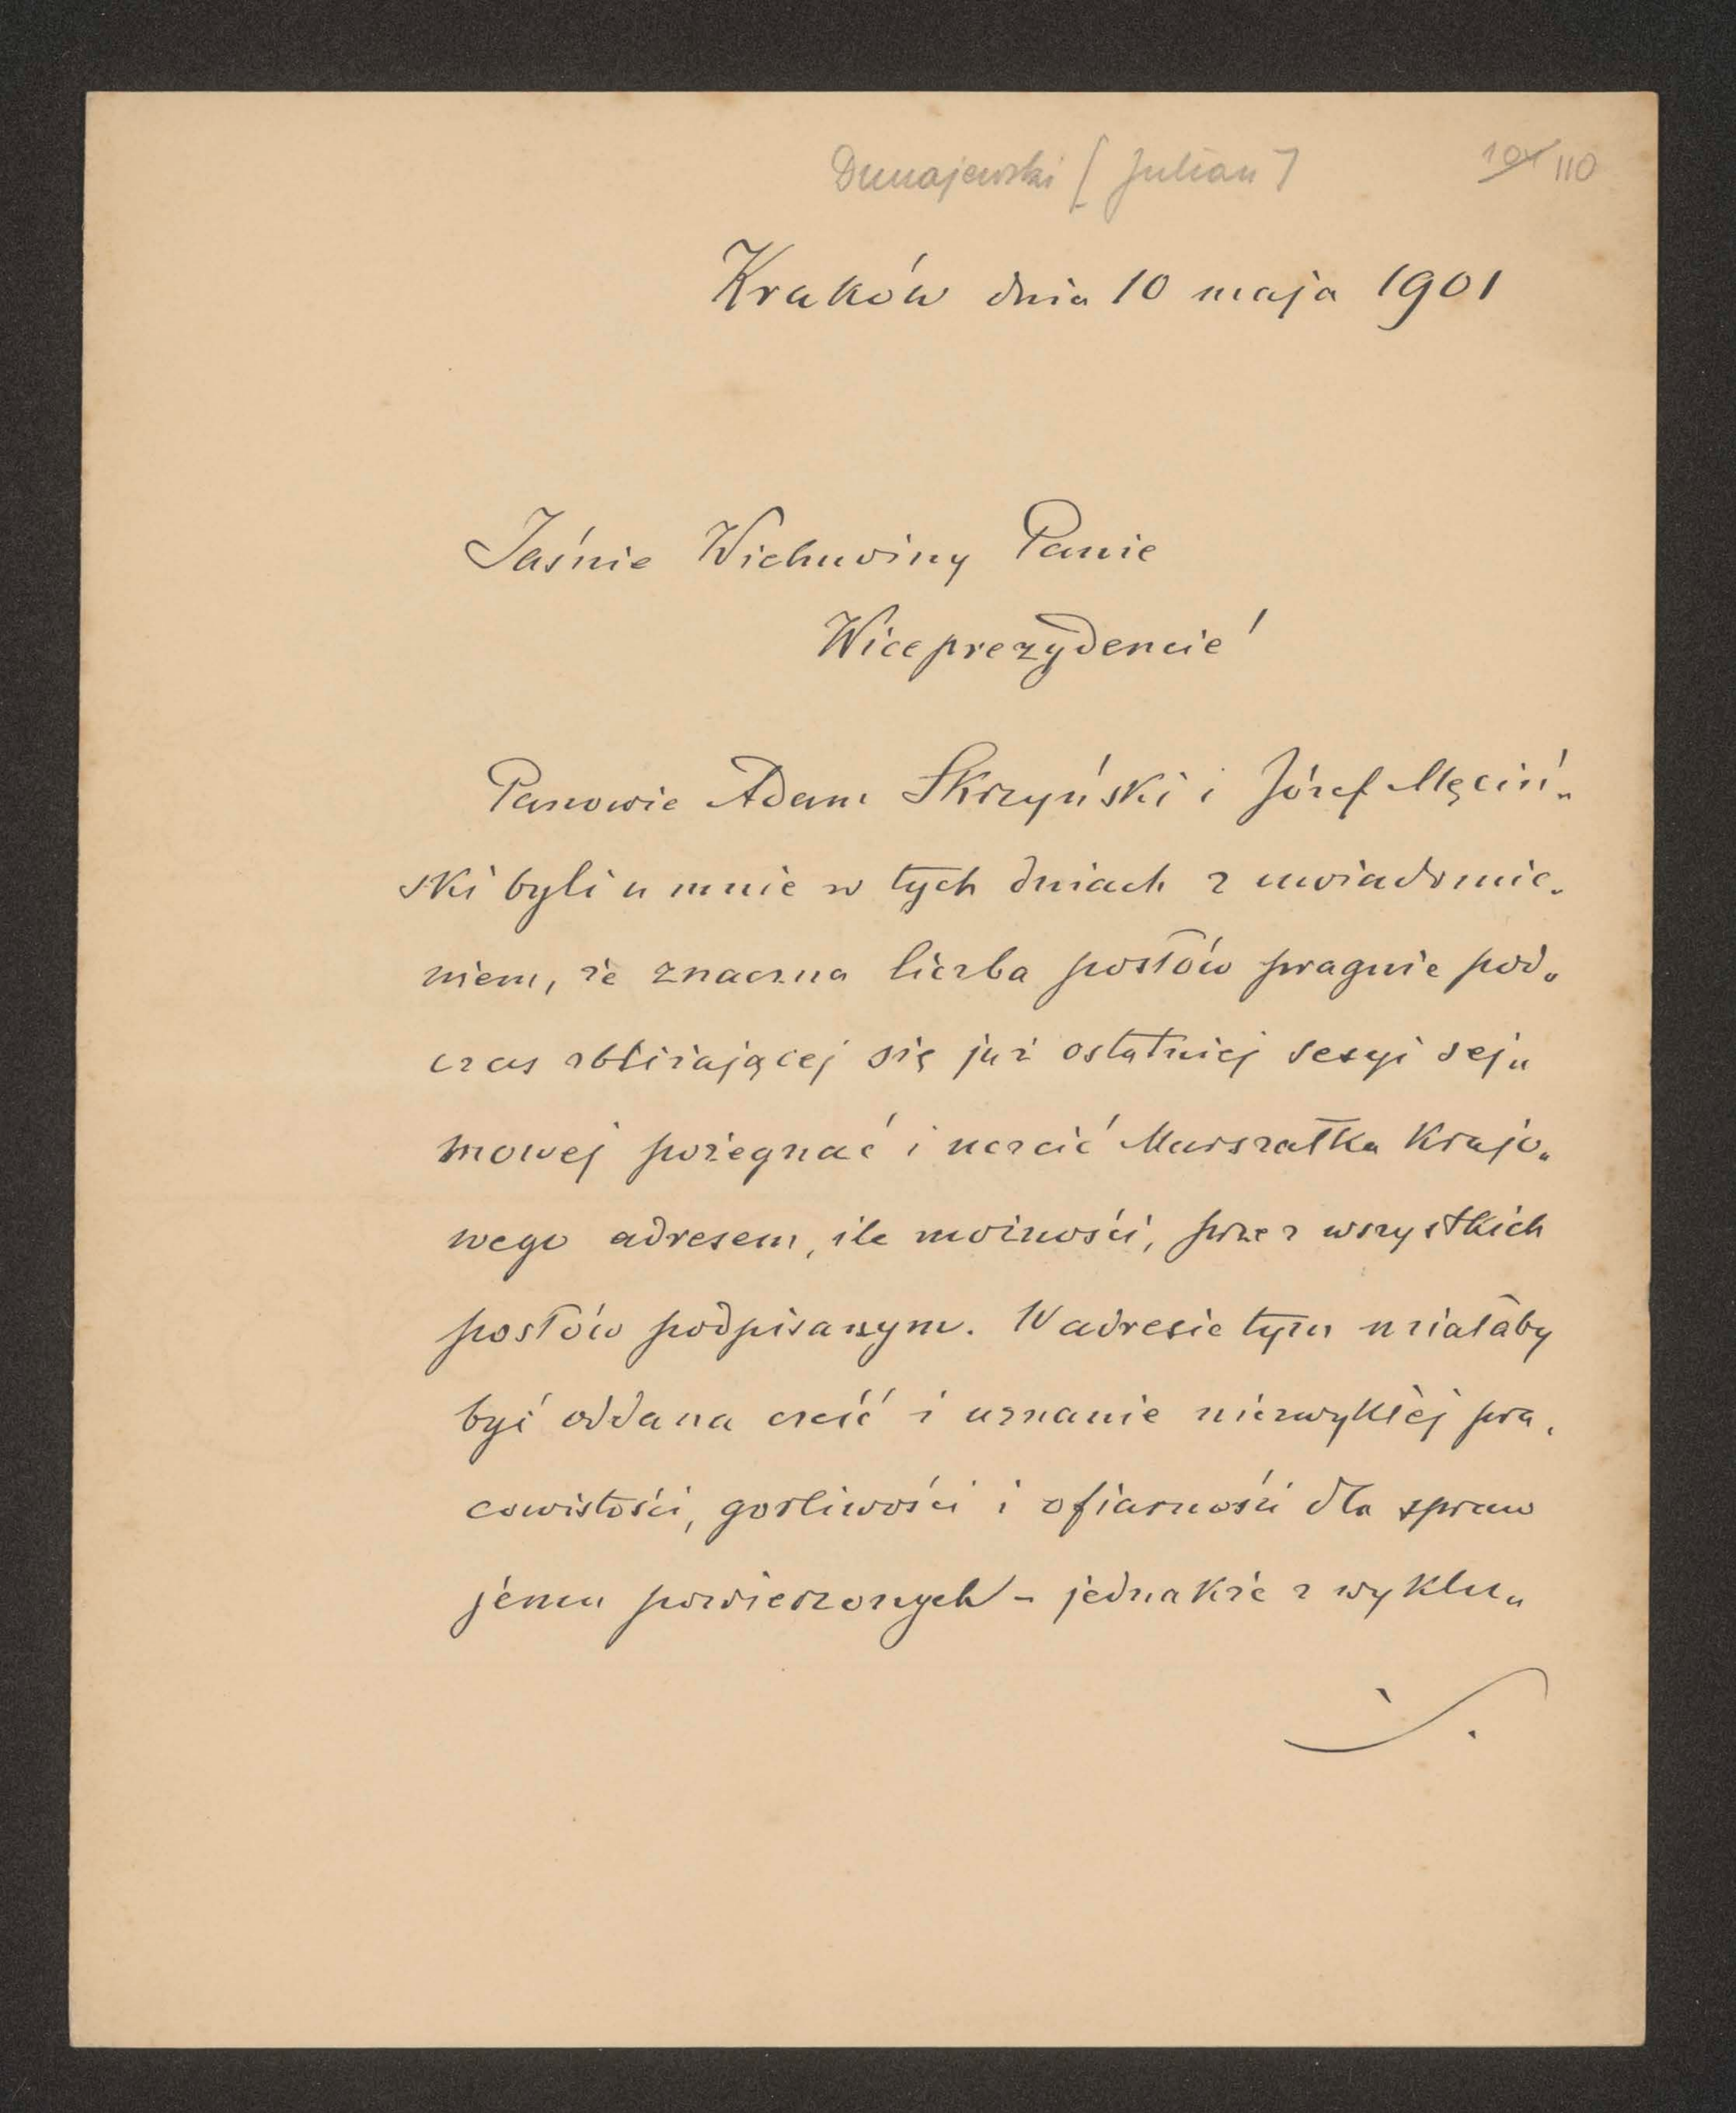 Dunajewski [Julian]
104 110
Kraków dnia 10 maja 1901
Jaśnie Wielmożny Panie
Wiceprezydencie!
Panowie Adam Skrzyński i Józef Męciń„
ski byli u mnie w tych dniach z uwiadomie„
niem, że znaczna liczba posłów pragnie pod„
czas zbliżającej się już ostatniej sesyi sej„
mowej pożegnać i uczcić Marszałka Krajo„
wego adresem, ile możności, przez wszystkich
posłów podpisanym. W adresie tym miałaby
być oddana cześć i uznanie niezwykłej pra„
cowistości, gorliwości i ofiarności dla spraw
jemu powierzonych – jednakże z wyklu„